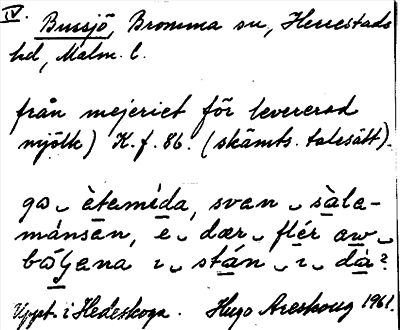 IV.
Bussjö, Bromma sn, Herrestads
hd, Malm. l.
från mejeriet för levererad
mjölk) K.f. 86. (skämts. talesätt).
go ‿ ètemída, svan ‿ sàla-
mánsan, e ‿ dær ‿ flér aw ‿
i ‿ stán ‿ i ‿ då?
Uppt. i Hedeskoga. Hugo Areskoug 1961.